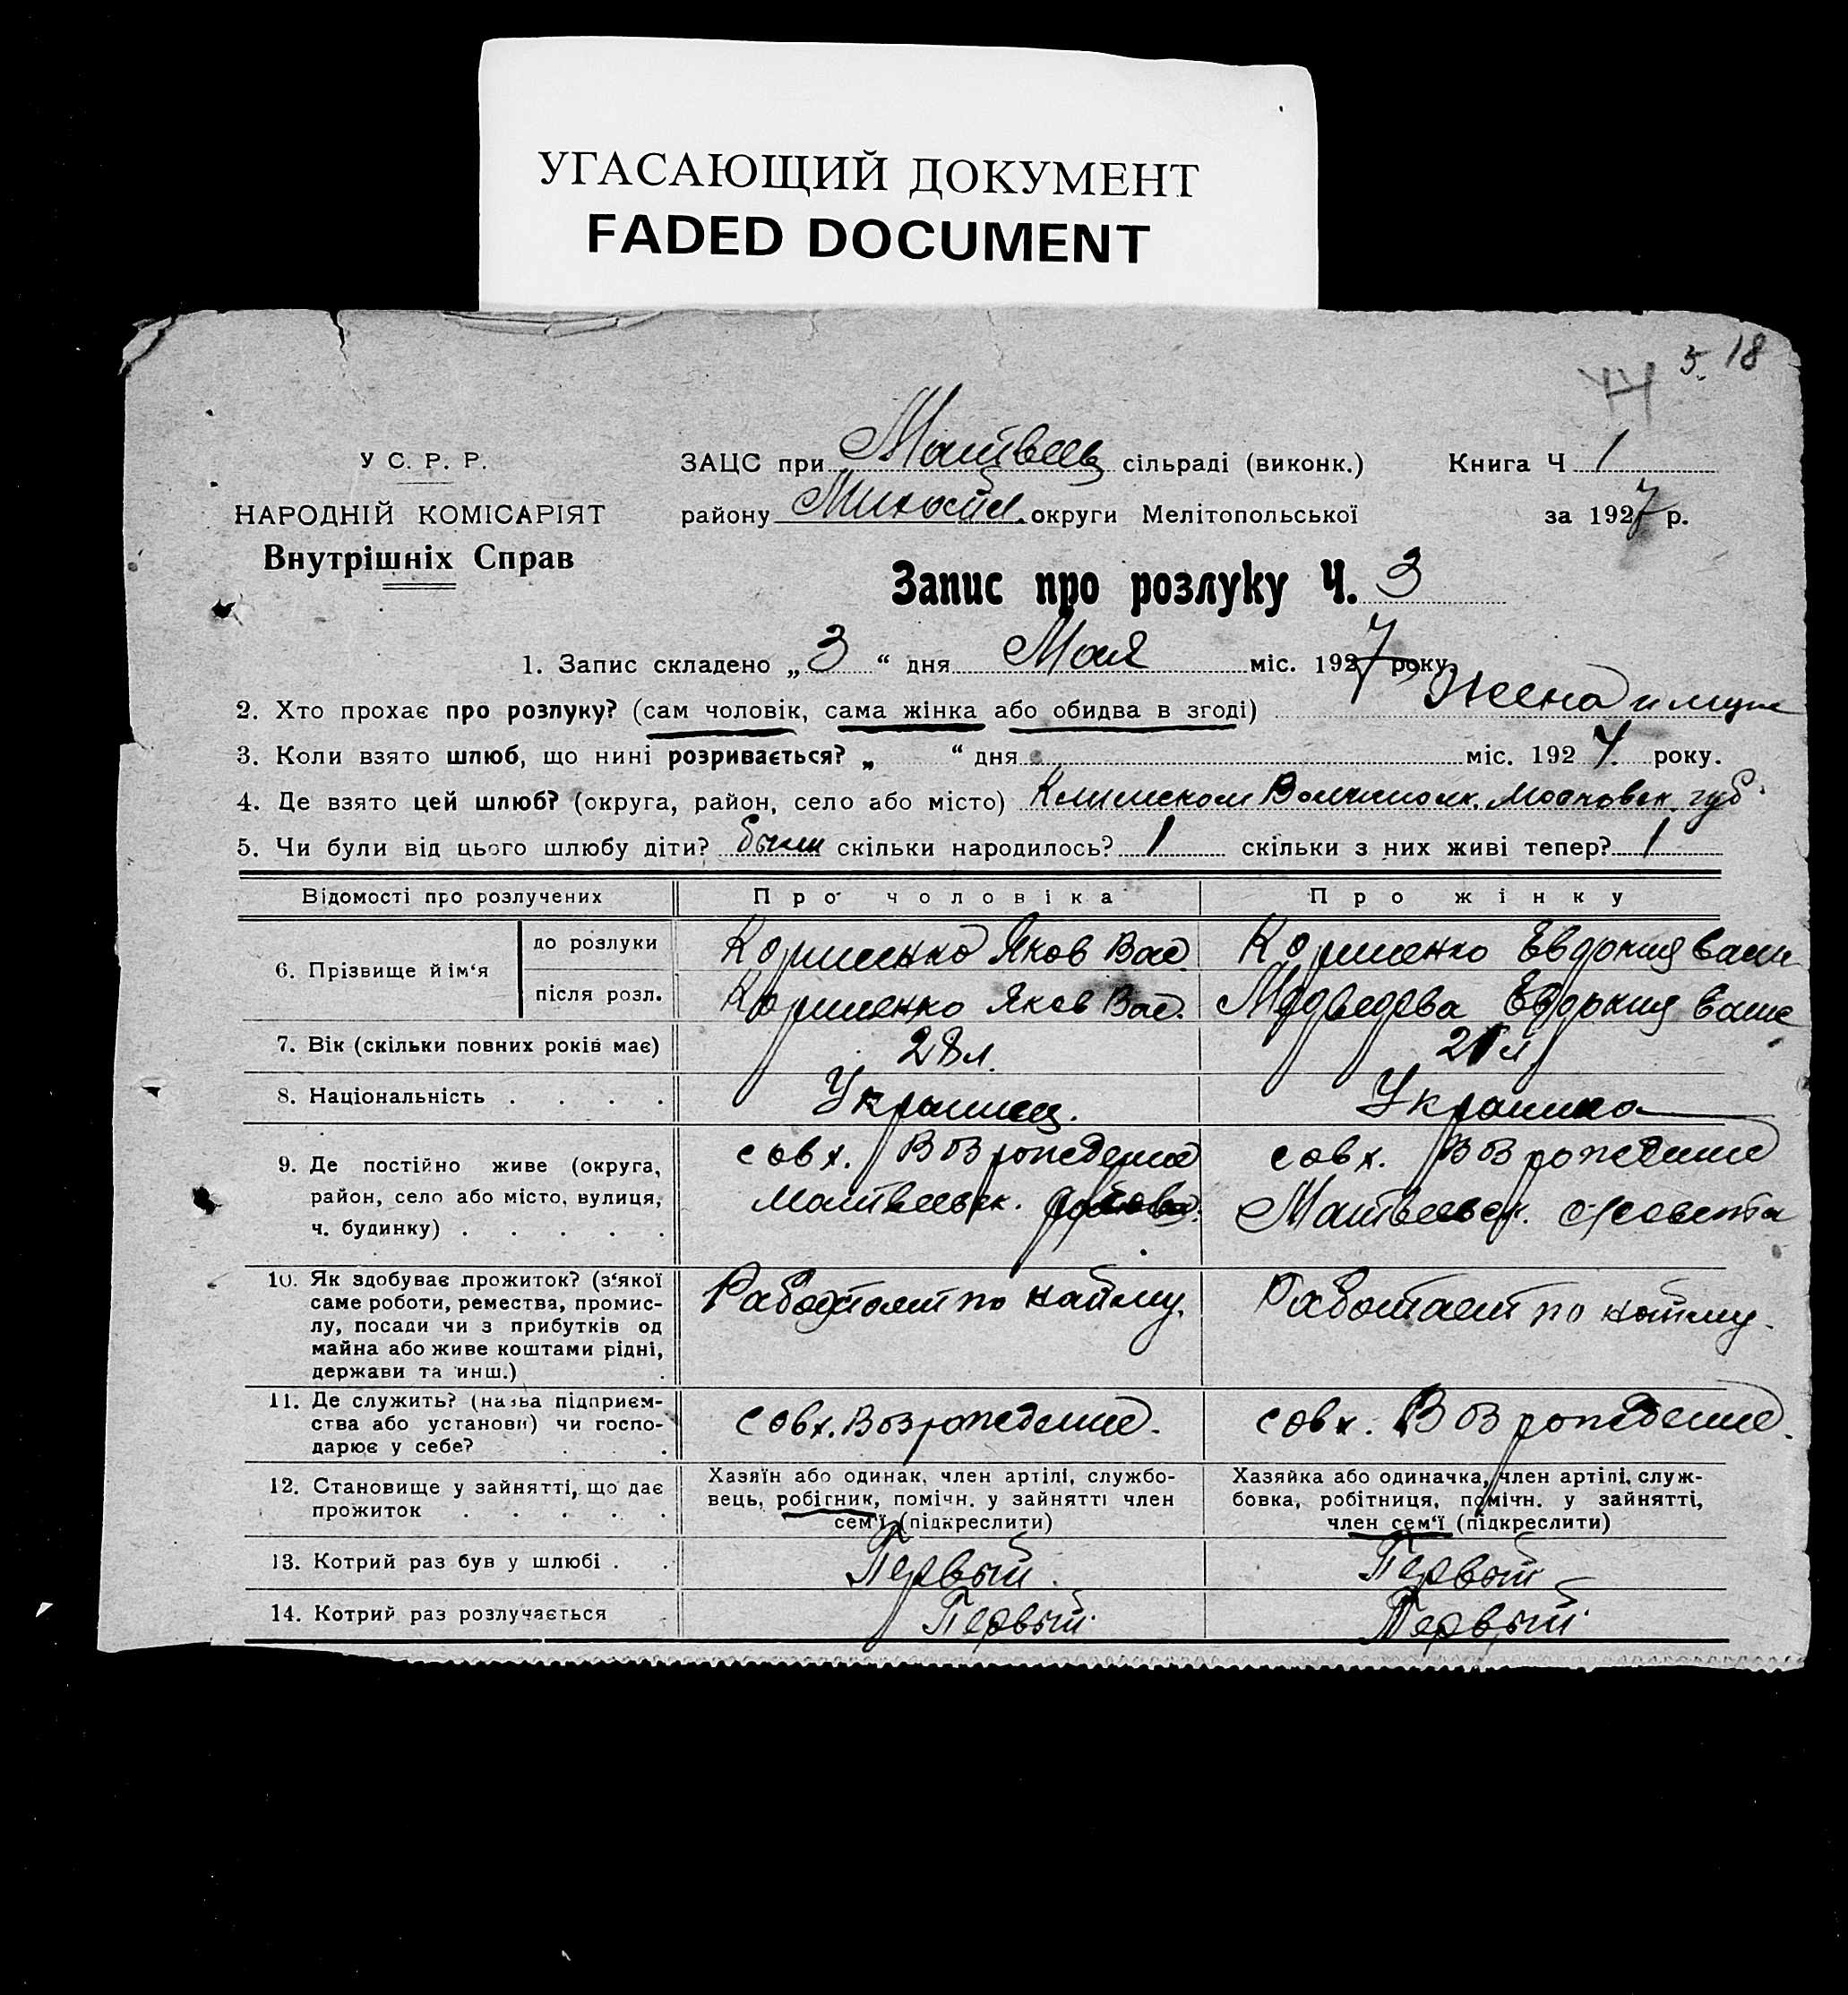 УГАСАЮЩИЙ ДОКУМЕНТ
FADED DOCUMENT
5. 18
44
У С. Р. Р.
НАРОДНІЙ КОМІСАРІЯТ
Внутрішніх Справ
ЗАЦС при Матвеев сільраді (виконк.) Книга Ч 1
району округи Мелітопольської за 1927 р.
Запис про розлуку Ч. 3
1. Запис складено „3“ дня Мая міс. 1927 року.
2. Хто прохає про розлуку? (сам чоловік, сама жінка або обидва в згоді) Жена и муж
3. Коли взято шлюб, що нині розривається? „ “ дня міс. 1924 року.
4. Де взято цей шлюб? (округа, район, село або місто) Московск. губ.
5. Чи були від цього шлюбу діти? были скільки народилось? 1 скільки з них живі тепер? 1
Відомості про розлучених Про чоловіка Про жінку
6. Прізвище й ім‘я до розлуки Яков Вас. Евдокия
після розл. Яков Вас. Медведева Евдокия
7. Вік (скільки повних років має) 28 л. 21 л
8. Національність . . . . Украинец. Украинка
9. Де постійно живе (округа, район, село або місто, вулиця, ч. будинку) . . . . .
совх. Возрождение Матвеевск.
совх. Возрождение Матвеевск. с/совета
10. Як здобуває прожиток? (з‘якої саме роботи, ремества, промислу, посади чи з прибутків од майна або живе коштами рідні, держави та инш.)
Работает по найму. Работает по найму.
11. Де служить? (назва підприємства або установи) чи господарює у себе? . . .
совх. Возрождение. совх. Возрождение.
12. Становище у зайнятті, що дає прожиток . . . . .
Хазяїн або одинак, член артілі, службовець, робітник, помічн. у зайнятті член сем‘ї (підкреслити)
Хазяйка або одиначка, член артілі, службовка, робітниця, помічн. у зайнятті, член сем‘ї (підкреслити)
13. Котрий раз був у шлюбі . . Первый. Первый
14. Котрий раз розлучається Первый. Первый.